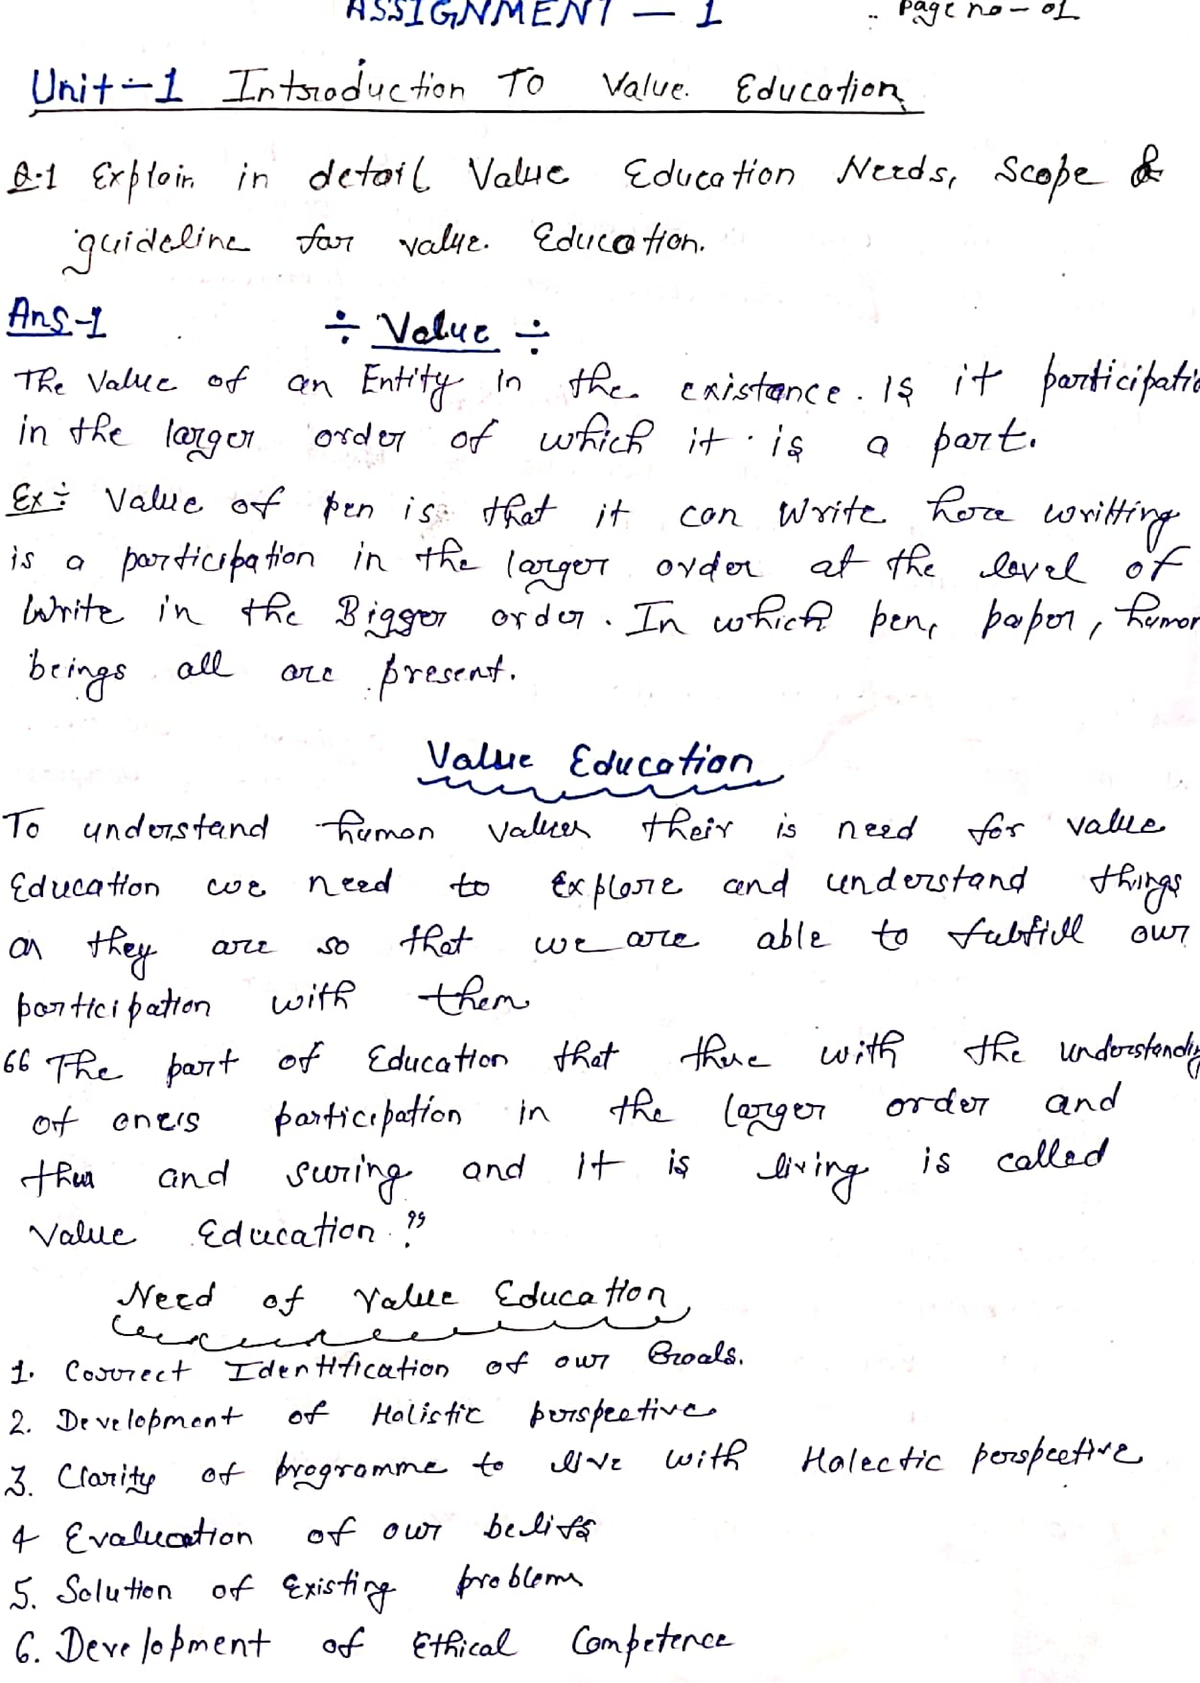 ASSIGNMENT - 1
Page no - 01
Unit-1 Introduction To Value Education
Q.1 Explain in detail Value Education Needs, Scope &
guideline for value Education.
Ans-1
÷ Value ÷
The Value of an Entity in the existance. Is it participatio
in the larger order of which it is a part.
Ex÷ Value of pen is that it can write here writting
is a participation in the larger order at the level of
write in the Bigger order. In which pen, paper, human
beings all are present.
Value Education
To understand human values their is need for value
Education we need to Explore and understand things
as they are so that we are able to fulfill our
participation with them
"The part of Education that with the understanding
of one's participation in the larger order and
and and it is living is called
Value Education."
Need of Value Education
1. Correct Identification of our Goals.
2. Development of Holistic perspective
3. Clarity of programme to live with Halectic perspective
4 Evaluation of our belifs
5. Solution of Existing problems
6. Development of Ethical Competence